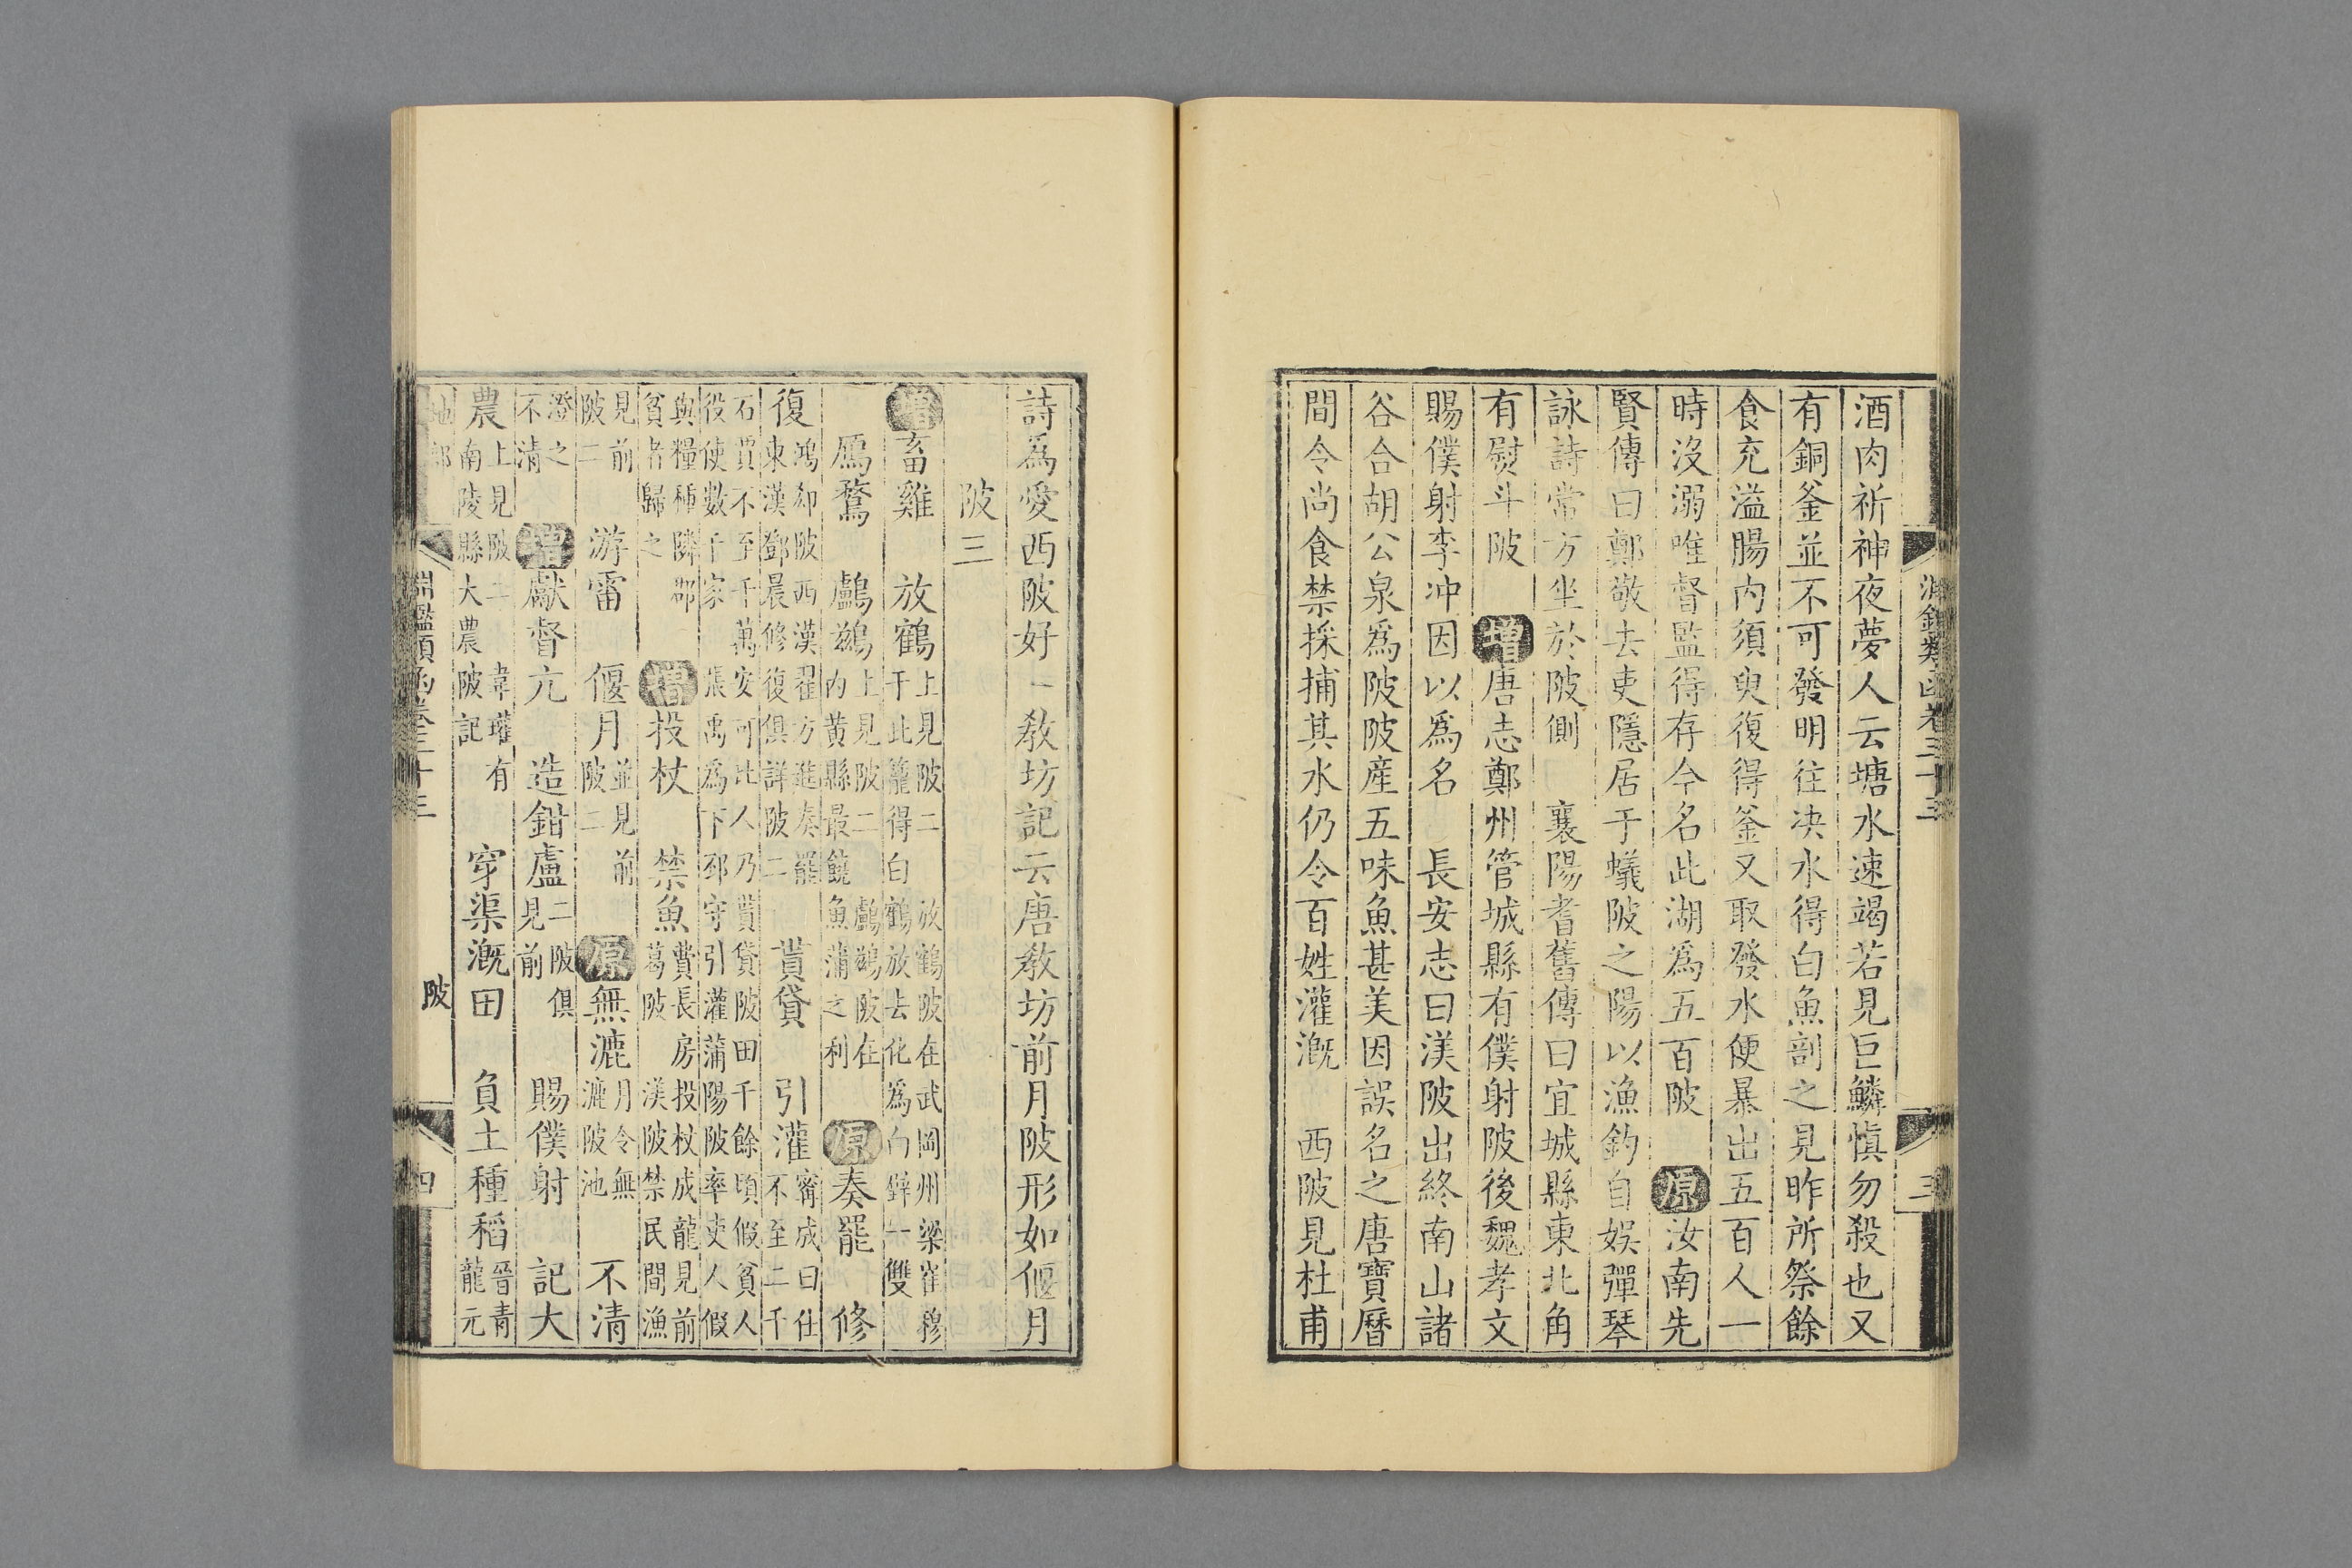 淵鑑類函卷三十三
三
酒肉祈神夜夢人云塘水速竭若見巨鱗愼勿殺也又
有銅釜並不可發明往决水得白魚剖之見昨所祭餘
食充溢腸内須臾復得釜又取發水便暴出五百人一
時沒溺唯督監得存今名此湖爲五百陂 原汝南先
賢傳曰鄭敬去吏隱居于蟻陂之陽以漁釣自娛彈琴
詠詩常方坐於陂側 襄陽耆舊傳曰宜城縣東北角
有熨斗陂 增唐志鄭州管城縣有僕射陂後魏孝文
賜僕射李冲因以爲名 長安志曰渼陂出終南山諸
谷合胡公泉爲陂陂産五味魚甚美因誤名之唐寶曆
間令尚食禁採捕其水仍令百姓灌漑 西陂見杜甫
詩爲愛西陂好一 教坊記云唐教坊前月陂形如偃月
陂三
增畜雞 放鶴上見陂二 放鶴陂在武岡州梁崔穆
于此籠得白鶴放去化爲白璧一雙
鴈鶩 鸕鷀上見陂二 鸕鷀陂在
内黄縣最饒魚蒲之利 原奏罷 修
復鴻却陂西漢翟方進奏罷
東漢鄧晨修復俱詳陂二 貰貸 引灌甯成曰仕
不至二千
石賈不至千萬安可比人乃貰貸陂田千餘頃假貧人
役使數千家 張禹爲下邳守引灌蒲陽陂率吏人假
與糧種隣郡
貧者歸之 增投杖 禁魚費長房投杖成龍見前
葛陂 渼陂禁民間漁
見前
陂二 游雷 偃月並見前
陂二 原無漉月令無
漉陂池 不清
澄之
不清 增獻督亢 造鉗盧二陂俱
見前 賜僕射 記大
農上見陂二 韋瓘有
南陵縣大農陂記 穿渠漑田 負土種稻晉青
龍元
淵鑑類函卷三十三
陂
四